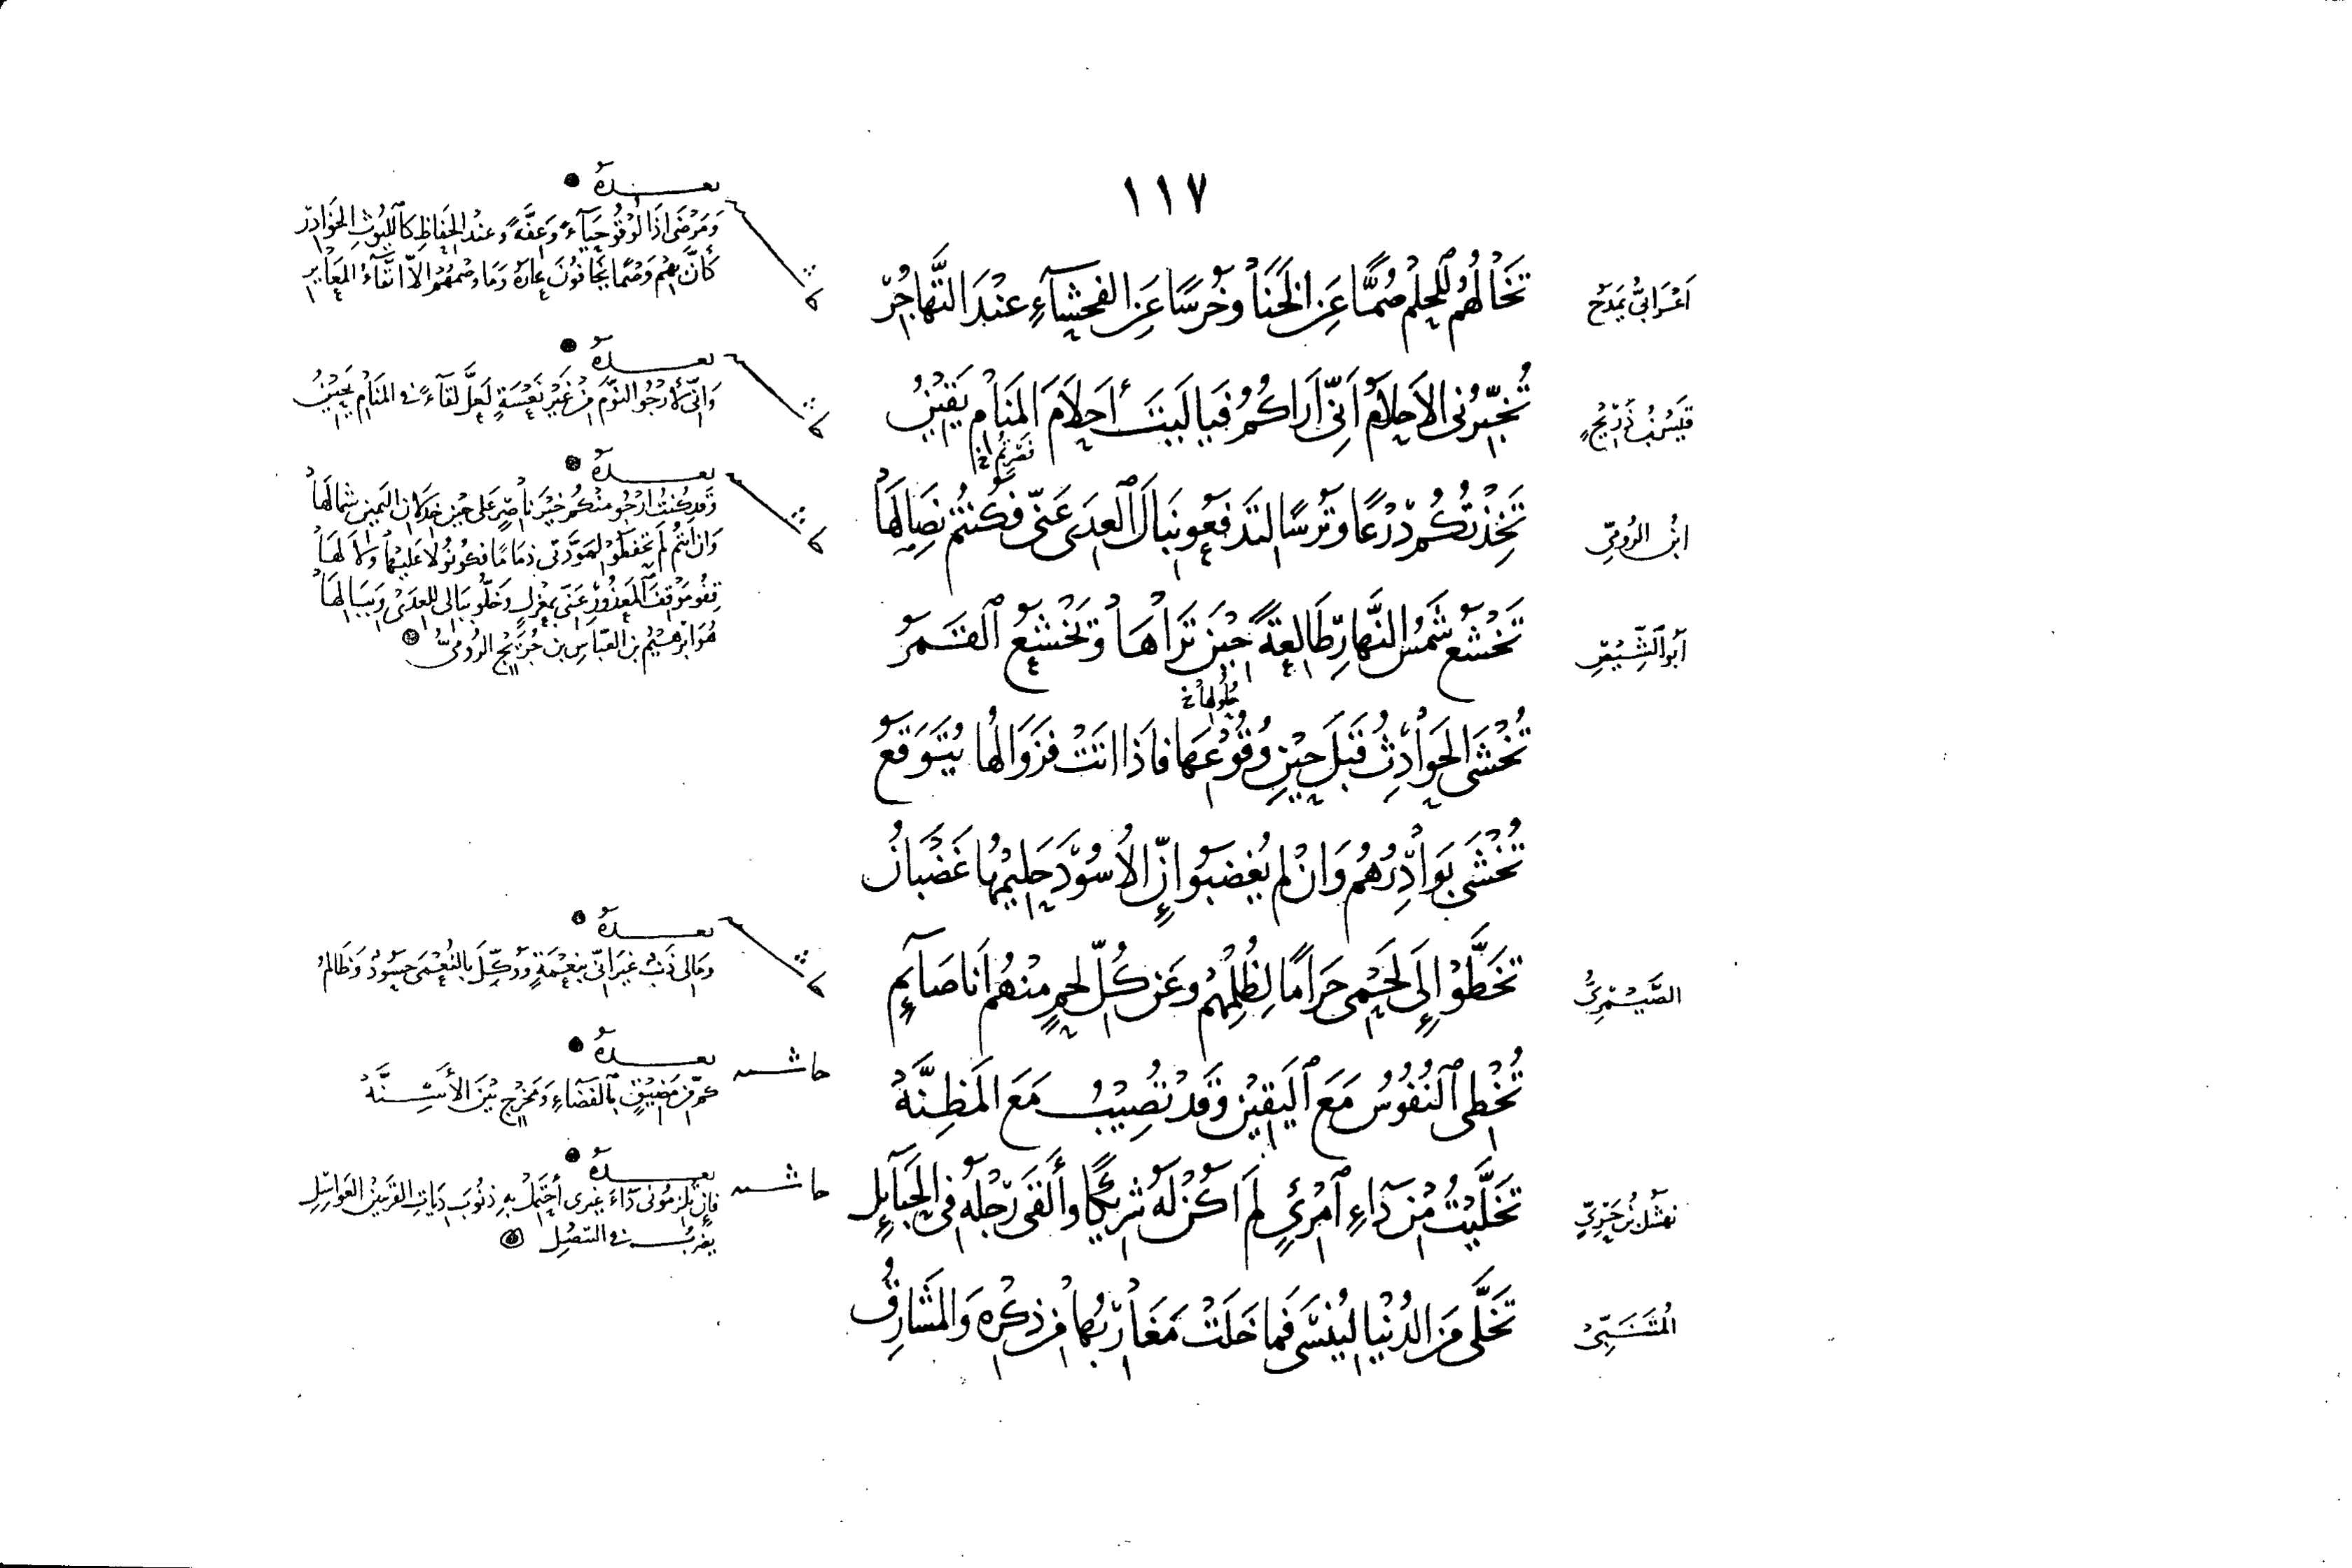 ١١٧
أعرابي يمدح
تَخَالُهُم لِلحِلمِ صُمًّا عَنِ الخَنَا وَخُرسًا عَنِ الفَحشَاءِ عِندَ التَّهَاجُرِ
بعده
وَمَرضَى إِذَا لُوقُوا حَيَاءً وَعِفَّةً وَعِندَ الحِفَاظِ كَاللُّيُوثِ الخَوَادِرِ
كَأَنَّ بِهِم وَصمًا يَخَافُونَ عَارَهُ وَمَا وَصمُهُم إِلَّا اتِّقَاءُ المَعَايِرِ
قيس بن ذريح
تُخَبِّرُنِي الأَحلَامُ أَنِّي أَرَاكُمُ فَيَا لَيتَ أَحلَامَ المَنَامِ يَقِينُ
بعده
وَإِنِّي لَأَرجُو النَّومَ مِن غَيرِ نَعسَةٍ لَعَلَّ لِقَاءً فِي المَنَامِ
ابن الرومي
تَخِذتُكُم دِرعًا وَتُرسًا لِتَدفَعُوا نِبَالَ العِدَى عَنِّي فَكُنتُم نِصَالَهَا
بعده
وَقَد كُنتُ أَرجُو مِنكُم خَيرَ نَاصِرٍ عَلَى حِينِ خِذلَانِ اليَمِينِ شِمَالَهَا
وَإِن أَنتُم لَم تَحفَظُوا لِمَوَدَّتِي ذِمَامًا فَكُونُوا لَا عَلَيهَا وَلَا لَهَا
قِفُوا مَوقِفَ المَعذُورِ عَنِّي بِمَعزِلٍ وَخَلُّوا نِبَالِي لِلعِدَى وَنِبَالَهَا
هو ابرهيم بن العباس بن جريج الرومي
أبو الشيص
تَخشَعُ شَمسُ النَّهَارِ طَالِعَةً حِينَ تَرَاهَا وَتَخشَعُ القَمَرُ
حلولها خ
تُخشَى الحَوَادِثُ قَبلَ حِينِ وُقُوعِهَا فَإِذَا أَتَت فَزَوَالُهَا يُتَوَقَّعُ
تُخشَى بَوَادِرُهُم وَإِن لَم يُغضَبُوا إِنَّ الأُسُودَ حَلِيمُهَا غَضبَانُ
الصيمري
تَخَطَّوا إِلَى لَحمِي حَرَامًا لِظُلمِهِم وَعَن كُلِّ لَحمٍ مِنهُم أَنَا صَائِمُ
بعده
وَمَا لِي ذَنبٌ غَيرَ أَنِّي بِنِعمَةٍ وَوُكِّلَ بِالنُّعمَى حَسُودٌ وَظَالِمُ
تُخطِي النُّفُوسُ مَعَ اليَقِينِ وَقَد تُصِيبُ مَعَ المَظِنَّه
حاشيه
بعده
كَم مِن مَضِيقٍ بِالفَضَاءِ وَمَخرَجٍ بَينَ الأَسِنَّه
نهشل بن حري
تَخَلَّيتُ مِن دَاءِ امرِئٍ لَم أَكُن لَهُ شَرِيكًا وَأَلقَى رِجلَهُ فِي الحَبَائِلِ
حاشيه
بعده
فَإِن تُلزِمُونِي دَاءَ غَيرِي أَحتَمِل بِهِ ذُنُوبَ
يضرب في التنصل
المتنبي
تَخَلَّى مِنَ الدُّنيَا لِيُنسَى فَمَا خَلَت مَغَارِبُهَا مِن ذِكرِهِ وَالمَشَارِقُ